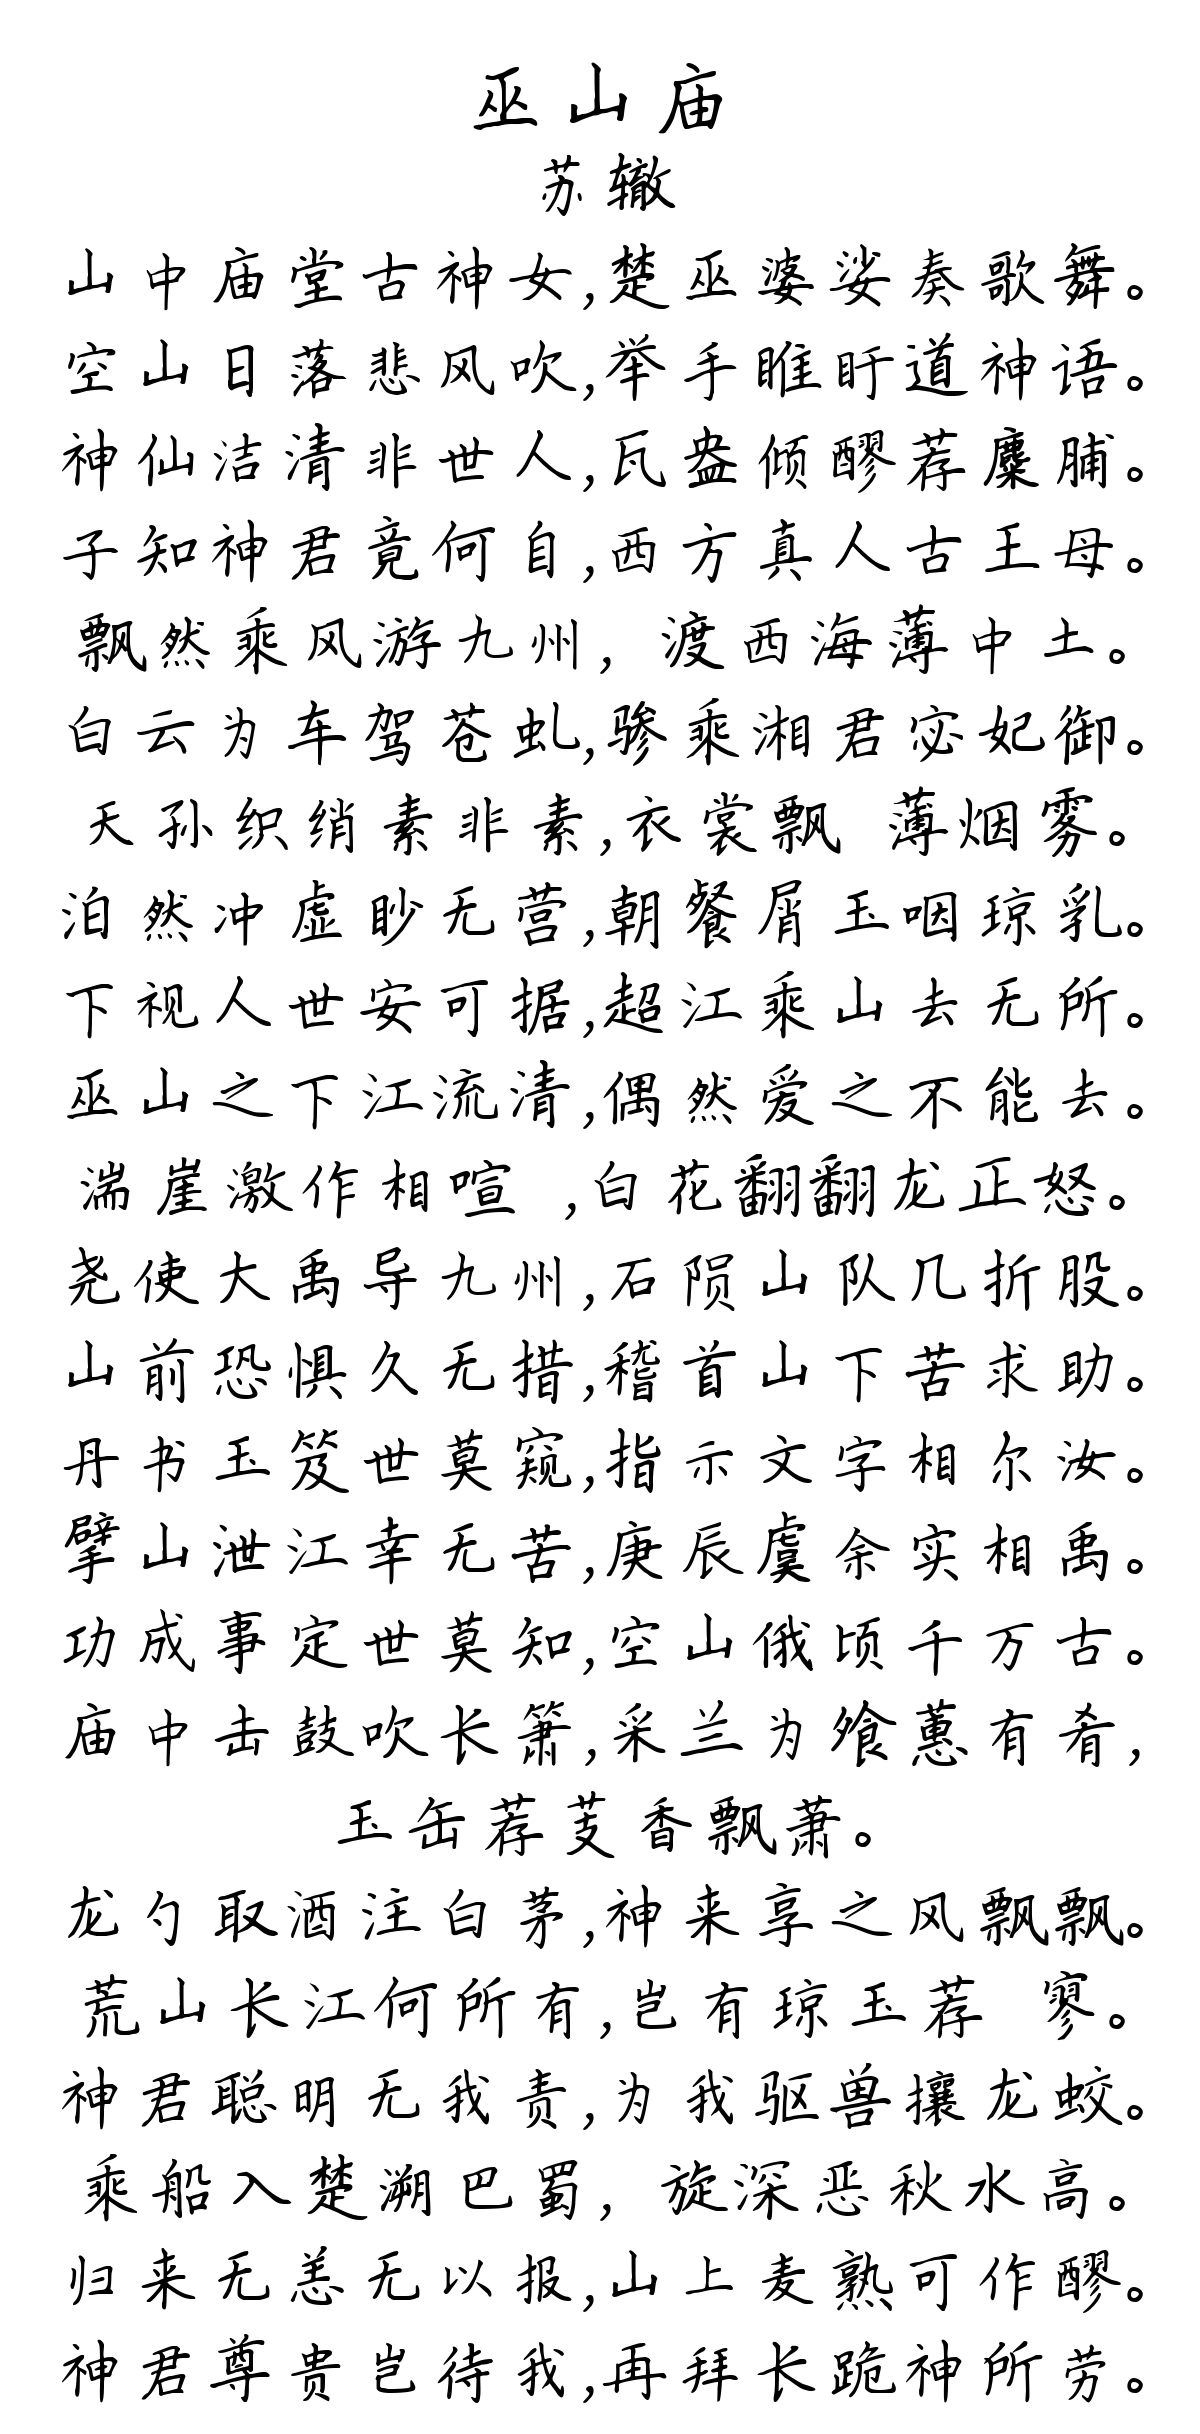 巫山庙
苏辙
山中庙堂古神女,楚巫婆娑奏歌舞。
空山日落悲风吹,举手睢盱道神语。
神仙洁清非世人,瓦盎倾醪荐麋脯。
子知神君竟何自,西方真人古王母。
飘然乘风游九州,渡西海薄中土。
白云为车驾苍虬,骖乘湘君宓妃御。
天孙织绡素非素,衣裳飘 薄烟雾。
泊然冲虚眇无营,朝餐屑玉咽琼乳。
下视人世安可据,超江乘山去无所。
巫山之下江流清,偶然爱之不能去。
湍崖激作相喧 ,白花翻翻龙正怒。
尧使大禹导九州,石陨山队几折股。
山前恐惧久无措,稽首山下苦求助。
丹书玉笈世莫窥,指示文字相尔汝。
擘山泄江幸无苦,庚辰虞余实相禹。
功成事定世莫知,空山俄顷千万古。
庙中击鼓吹长箫,采兰为飧蕙有肴,
玉缶荐芰香飘萧。
龙勺取酒注白茅,神来享之风飘飘。
荒山长江何所有,岂有琼玉荐 寥。
神君聪明无我责,为我驱兽攘龙蛟。
乘船入楚溯巴蜀,旋深恶秋水高。
归来无恙无以报,山上麦熟可作醪。
神君尊贵岂待我,再拜长跪神所劳。